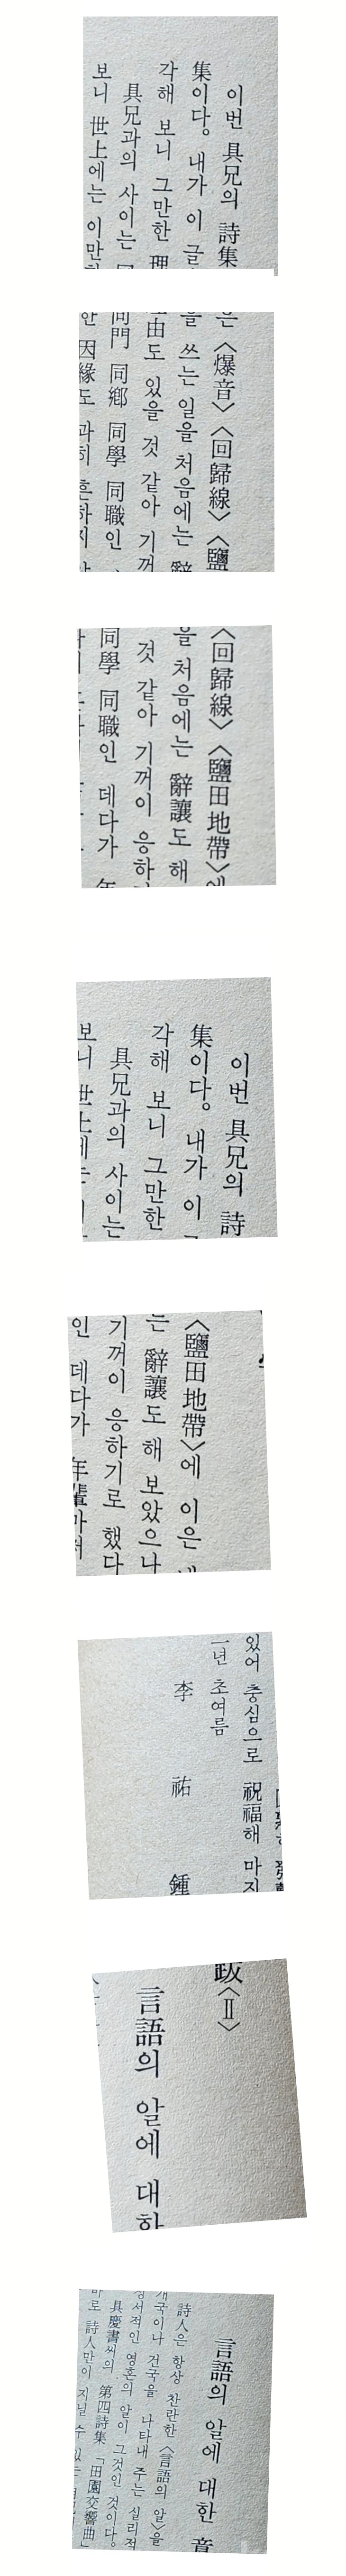 이번 具兄의 詩集
集이다。 내가 이 글
각해 보니 그만한 理
具兄과의 사이는
보니 世上에는 이만한
은 〈爆音〉 〈回歸線〉 〈鹽
을 쓰는 일을 처음에는 辭
由도 있을 것 같아 기꺼
同門 同鄕 同學 同職인
한 因緣도 과히 흔하지
〈回歸線〉 〈鹽田地帶〉에
을 처음에는 辭讓도 해
것 같아 기꺼이 응하
同學 同職인 데다가 年
이번 具兄의 詩
集이다。 내가 이
각해 보니 그만한
具兄과의 사이는
보니 世上에는
〈鹽田地帶〉에 이은
는 辭讓도 해 보았으나
기꺼이 응하기로 했다
인 데다가 年輩마저
있어 충심으로 祝福해 마지
一년 초여름
李 祐 鍾
跋〈Ⅱ〉
言語의 알에 대한
言語의 알에 대한 章
詩人은 항상 찬란한 〈言語의 알〉을
개국이나 건국을 나타내 주는 설리적
정서적인 영혼의 알이 그것인 것이다。
具慶書씨의 第四詩集 「田園交響曲」
바로 詩人만이 지닐 수 있는